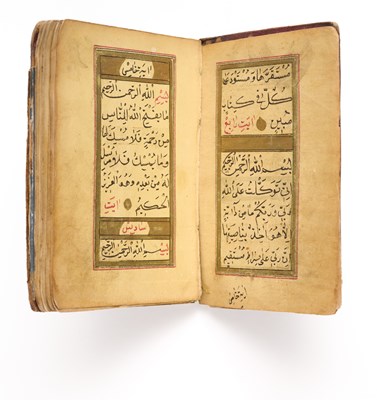 مستقرها ومستودعها
كل في كتاب
مبين ايت رابع
بسم الله الرحمن الرحيم
اني توكلت على الله
ربي وربكم ما من دابة
الا هو آخذ بناصيتها
ان ربي على صراط مستقيم
ايت خامس
ايت خامس
بسم الله الرحمن الرحيم
ما يفتح الله للناس
من رحمة فلا ممسك لها
وما يمسك فلا مرسل
له من بعده وهو العزيز
الحكيم ايت
سادس
بسم الله الرحمن الرحيم